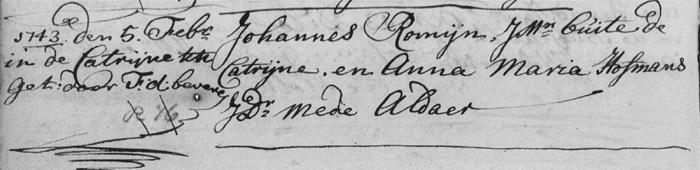 1743. den 5. Febr
in de Catrijne kk
Get: door T: d: bevere
Johannes Romijn. J Mn büite de
Catrijne. en Anna Maria Hofmans
J Dr mede Aldaer